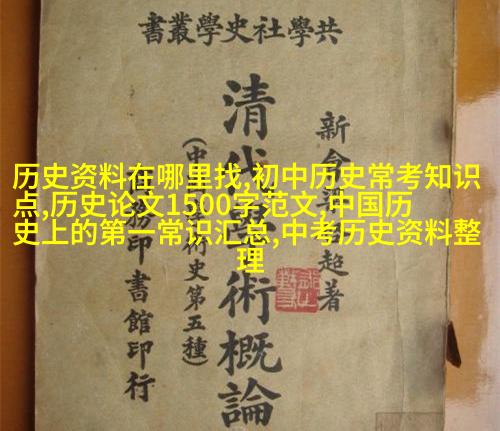 共學社史學叢書
历史资料在哪里找,初中历史常考知识
点,历史论文1500字范文,中国历
史上的第一常识汇总,中考历史资料整
理
新會
超著
清代學術概論
術史第五種)
印書館印行